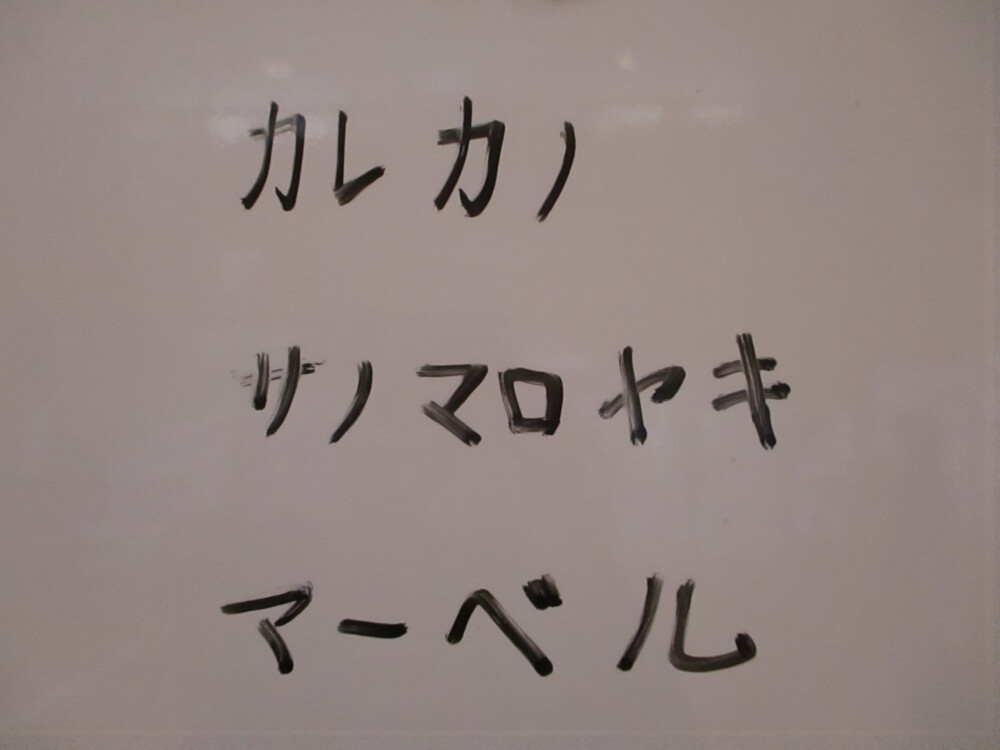 カレカノ
サノマロヤキ
マーベル